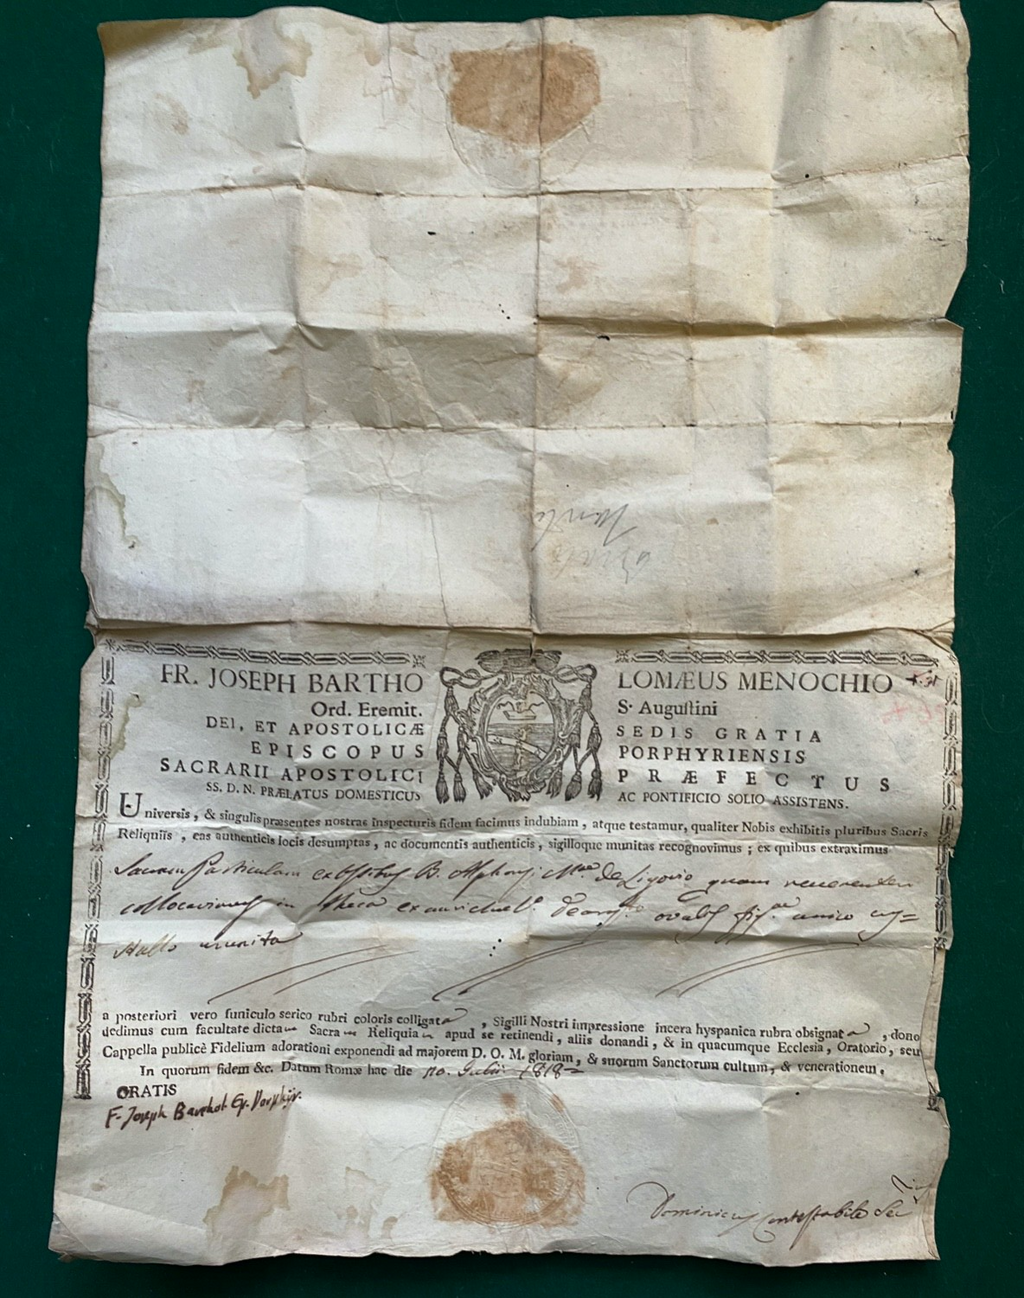 FR. JOSEPH BARTHO LOMÆUS MENOCHIO
Ord. Eremit. S. Auguſtini
DEI, ET APOSTOLICÆ SEDIS GRATIA
EPISCOPUS PORPHYRIENSIS
SACRARII APOSTOLICI PRÆFECTUS
SS. D. N. PRÆLATUS DOMESTICUS AC PONTIFICIO SOLIO ASSISTENS.
Universis, & singulis præsentes nostras inspecturis fidem facimus indubiam, atque testamur, qualiter Nobis exhibitis pluribus Sacris
Reliquiis, eas authenticis locis desumptas, ac documentis authenticis, sigilloque munitas recognovimus; ex quibus extraximus
Sacram Particulam ex B. de Ligorio quam reverenter
collocavimus in theca unico cry=
stallo munita
a posteriori vero funiculo serico rubri coloris colligata, Sigilli Nostri impressione incera hyspanica rubra obsignata, dono
dedimus cum facultate dictam Sacram Reliquiam apud se retinendi, aliis donandi, & in quacumque Ecclesia, Oratorio, seu
Cappella publicè Fidelium adorationi exponendi ad majorem D. O. M. gloriam, & suorum Sanctorum cultum, & venerationem.
In quorum fidem &c. Datum Romæ hac die 1818
GRATIS
F. Joseph Barthol. Ep. Porphyr.
Dominicus